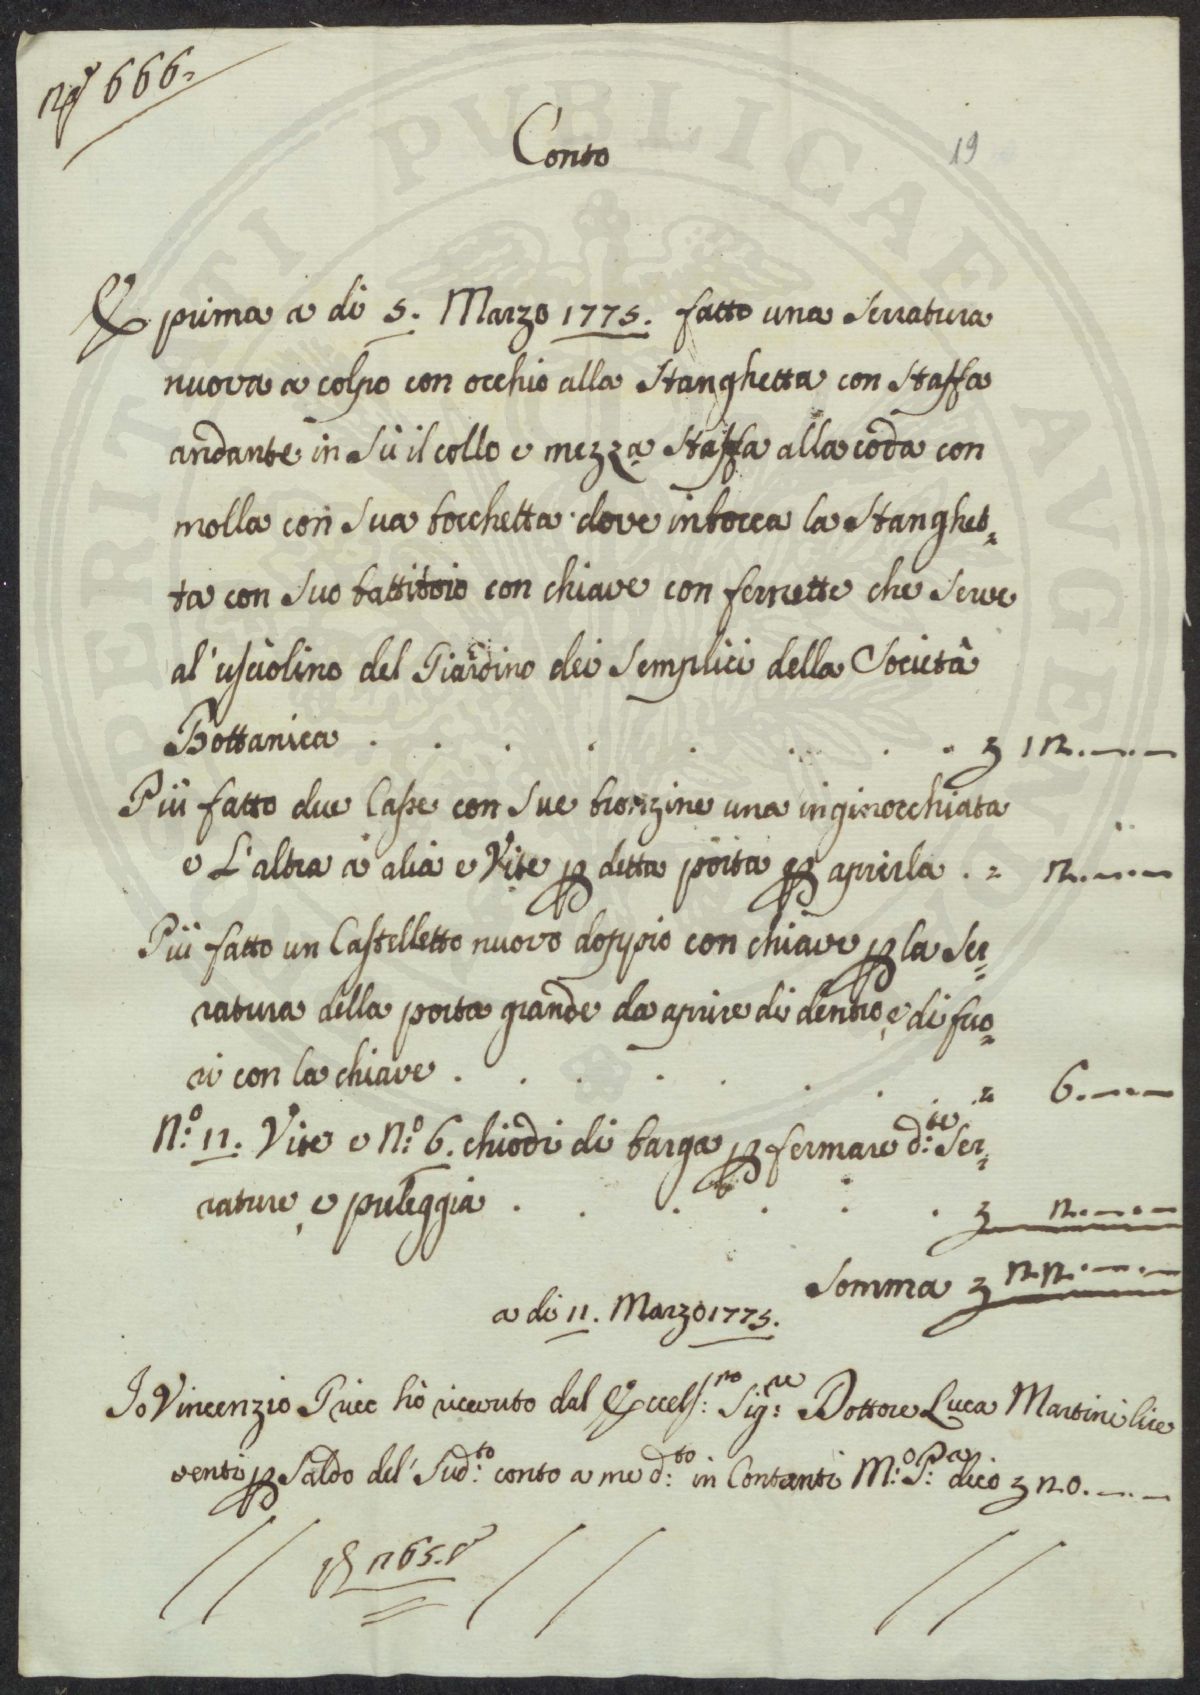 Nº 666.
Conto
19
E prima a di 5. Marzo 1775. fatto una Serratura
nuova a colpo con occhio alla Stanghetta con Staffa
andante in Sù il collo e mezza Staffa alla coda con
molla con Sua bocchetta dove inbocca la Stanghet=
ta con Suo battitoio con chiave con fernette che Serve
al' usciolino del Giardino dei Semplici della Società
Bottanica . . . . . . . . 12.—.—
Più fatto due Casse con Sue bronzine una inginocchiata
e L'altra à alia e Vite p detta porta p aprirla . = 2.—.—
Più fatto un Castelletto nuovo doppio con chiave p la Ser=
ratura della porta grande da aprire di dentro e di fuo=
ri con la chiave . . . . . . . = 6.—.—
N.º 12. Vite e N.º 6. chiodi di barga p fermare d.te Ser=
rature e puleggia . . . . . . 2.—.—
Somma 22.—.—
a di 11. Marzo 1775.
Io Vincenzio Pucc hò riceuto dal Eccels.mo Sig.re Dottore Luca Martini lire
venti p Saldo del' Sud.to conto a me d.to in Contanti M.o P.a dico 20.—.—
265.
OPERITATI PUBLICAE AUGENDAE